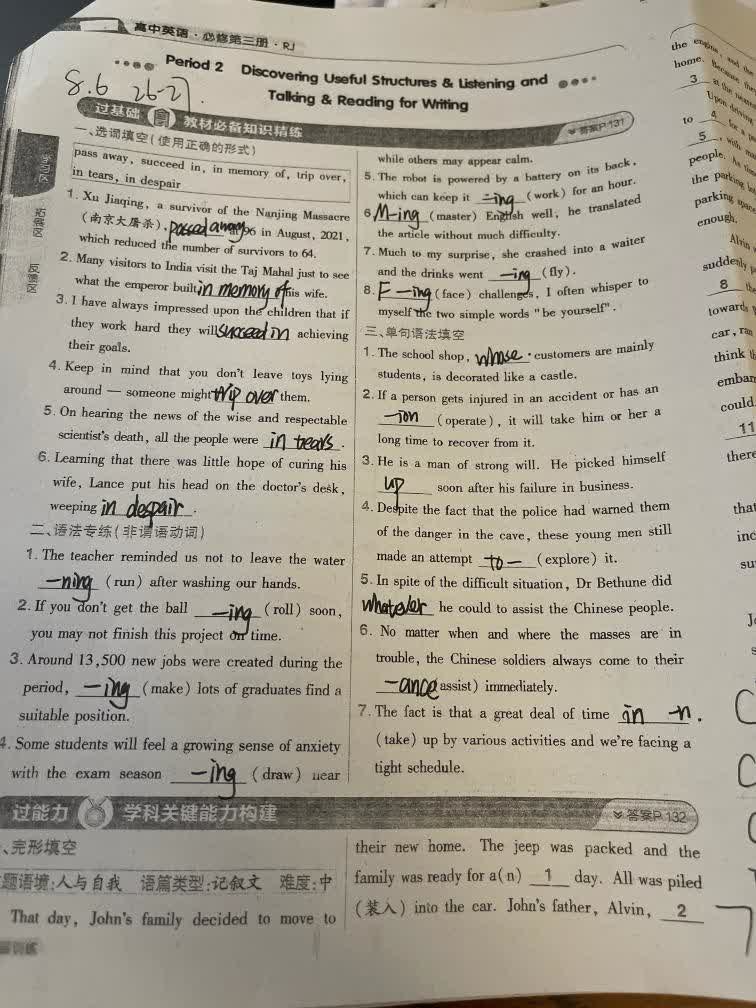 高中英语·必修第三册·RJ
Period 2 Discovering Useful Structures & Listening and
Talking & Reading for Writing
8.6 26-27.
过基础 教材必备知识精练
答案P.131
一、选词填空(使用正确的形式)
pass away, succeed in, in memory of, trip over,
in tears, in despair
1. Xu Jiaqing, a survivor of the Nanjing Massacre
(南京大屠杀), passed away 96 in August, 2021,
which reduced the number of survivors to 64.
2. Many visitors to India visit the Taj Mahal just to see
what the emperor built in memory of his wife.
3. I have always impressed upon the children that if
they work hard they will succeed in achieving
their goals.
4. Keep in mind that you don't leave toys lying
around — someone might trip over them.
5. On hearing the news of the wise and respectable
scientist's death, all the people were in tears.
6. Learning that there was little hope of curing his
wife, Lance put his head on the doctor's desk,
weeping in despair.
二、语法专练(非谓语动词)
1. The teacher reminded us not to leave the water
-ning (run) after washing our hands.
2. If you don't get the ball -ing (roll) soon,
you may not finish this project on time.
3. Around 13,500 new jobs were created during the
period, -ing (make) lots of graduates find a
suitable position.
4. Some students will feel a growing sense of anxiety
with the exam season -ing (draw) near
while others may appear calm.
5. The robot is powered by a battery on its back,
which can keep it -ing (work) for an hour.
6. M-ing (master) English well, he translated
the article without much difficulty.
7. Much to my surprise, she crashed into a waiter
and the drinks went -ing (fly).
8. F-ing (face) challenges, I often whisper to
myself the two simple words "be yourself".
三、单句语法填空
1. The school shop, whose customers are mainly
students, is decorated like a castle.
2. If a person gets injured in an accident or has an
-ion (operate), it will take him or her a
long time to recover from it.
3. He is a man of strong will. He picked himself
up soon after his failure in business.
4. Despite the fact that the police had warned them
of the danger in the cave, these young men still
made an attempt to — (explore) it.
5. In spite of the difficult situation, Dr Bethune did
whatever he could to assist the Chinese people.
6. No matter when and where the masses are in
trouble, the Chinese soldiers always come to their
-ance (assist) immediately.
7. The fact is that a great deal of time -n.
(take) up by various activities and we're facing a
tight schedule.
过能力 学科关键能力构建
答案P.132
、完形填空
题语境:人与自我 语篇类型:记叙文 难度:中
That day, John's family decided to move to
their new home. The jeep was packed and the
family was ready for a(n) 1 day. All was piled
(装入) into the car. John's father, Alvin, 2
学习区
拓展区
反馈区
the engine, and the
home. Because they
3 at the
Upon driving
to 4 for a
5, with
people. As time
the parking
parking space
enough.
Alvin
suddenly
8 the
towards
car, ran
think
embar
could.
11
there
that
inc
su